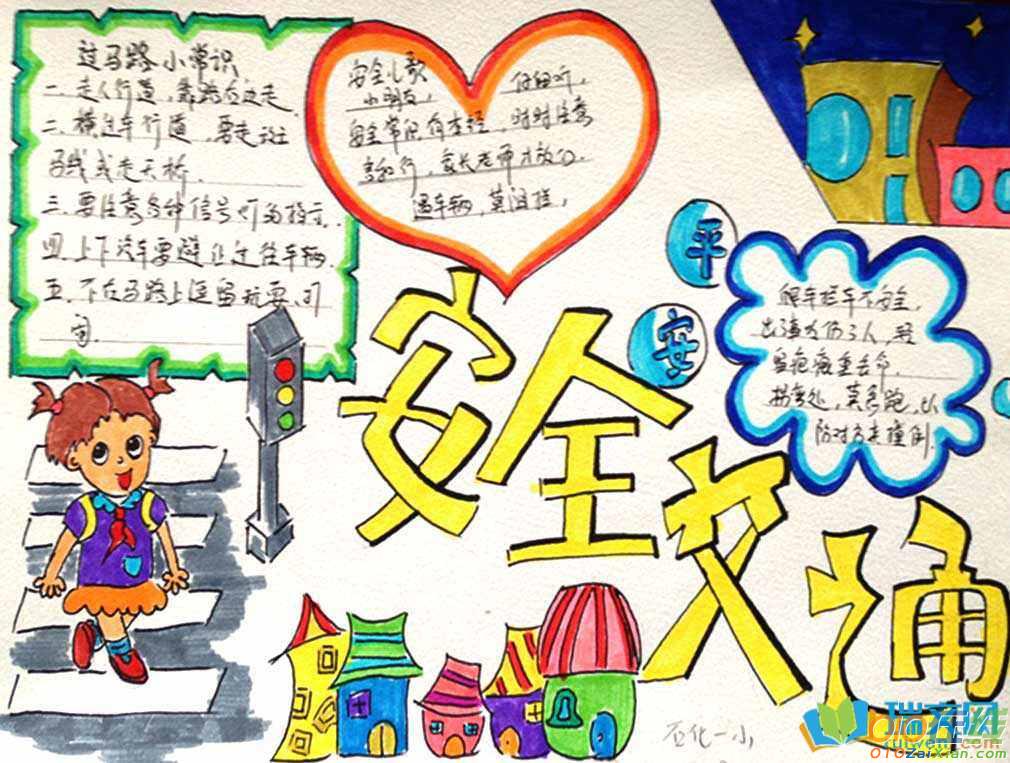 过马路小常识
一、走人行道，靠路右边走
二、横过车行道，要走斑
马线或走天桥.
三、要注意各种信号灯的指示.
四、上下汽车要避让过往车辆.
五、不在马路上逗留玩耍、打
闹.
安全儿歌
小朋友， 仔细听，
安全常识有本经，时时注意
家长老师才放心.
遇车辆，莫
平
安
爬车拦车不安全，
出
莫多跑，以
防对方来撞倒.
安全交通
石化一小
瑞文网
ruiwen.com
010zaixian.com